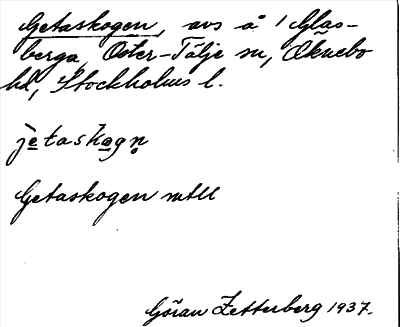 Getaskogen, avs å 1 Glas-
berga, Öster-Tälje sn, Öknebo
hd, Stockholms l.
je̲tasko̲gn̥
Getaskogen mtll
Göran Zetterberg 1937.